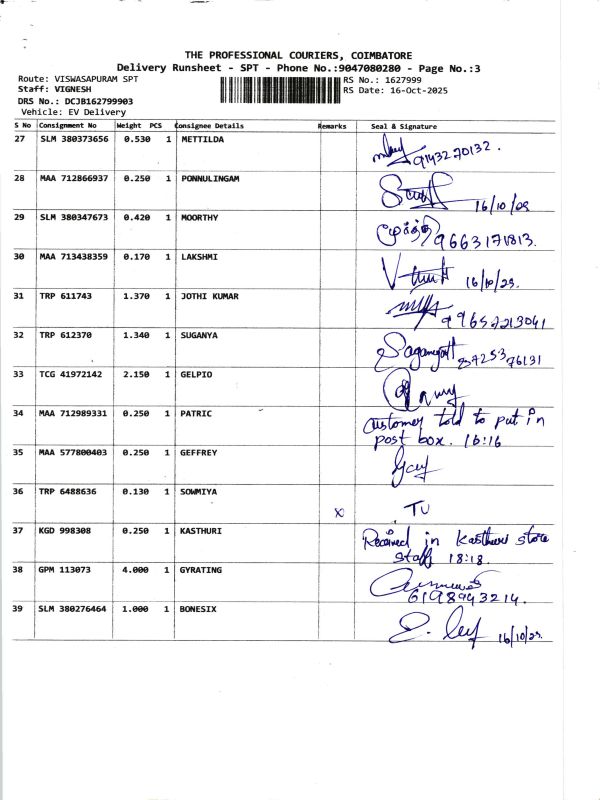 THE PROFESSIONAL COURIERS, COIMBATORE
Delivery Runsheet - SPT - Phone No.:9047080280 - Page No.:3
Route: VISWASAPURAM SPT RS No.: 1627999
Staff: VIGNESH RS Date: 16-Oct-2025
DRS No.: DCJB162799903
Vehicle: EV Delivery
S No Consignment No Weight PCS Consignee Details Remarks Seal & Signature
27 SLM 380373656 0.530 1 METTILDA
9143270132.
28 MAA 712866937 0.250 1 PONNULINGAM
16/10/25
29 SLM 380347673 0.420 1 MOORTHY
மூர்த்தி 9663171813.
30 MAA 713438359 0.170 1 LAKSHMI
16/10/25.
31 TRP 611743 1.370 1 JOTHI KUMAR
99652213041
32 TRP 612370 1.340 1 SUGANYA
33 TCG 41972142 2.150 1 GELPIO
34 MAA 712989331 0.250 1 PATRIC
Customer told to put in
post box. 16:16
35 MAA 577800403 0.250 1 GEFFREY
36 TRP 6488636 0.130 1 SOWMIYA
x TU
37 KGD 998308 0.250 1 KASTHURI
Received in Kasthuri store
staff 18:18.
38 GPM 113073 4.000 1 GYRATING
6198943214.
39 SLM 380276464 1.000 1 BONESIX
16/10/25.